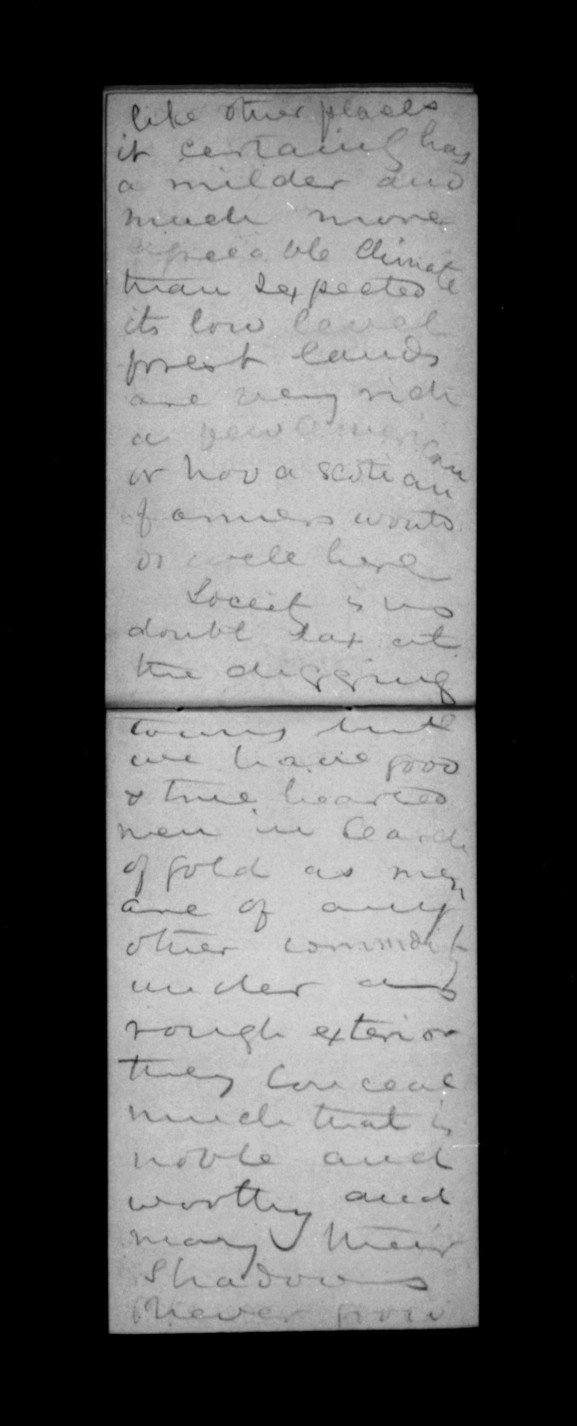 like other places
it certainly has
a milder and
much more
agreeable climate
than I expected
its low level
forest lands
are very rich
a New American
or Nova Scotian
farmers would
do well here
Society is no
doubt lax at
the digging
towns but
we have good
& true hearted
men in Search
of gold as men
are of any
other commodity
under a
rough exterior
they conceal
much that is
noble and
worthy and
may their
Shadows
never grow